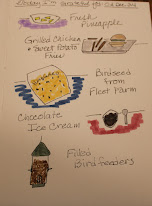 Grateful for
Fresh
Pineapple
Grilled Chicken
+ Sweet Potato
Fries
Birdseed
from
Fleet Farm
Chocolate
Ice Cream
Filled
Birdfeeders